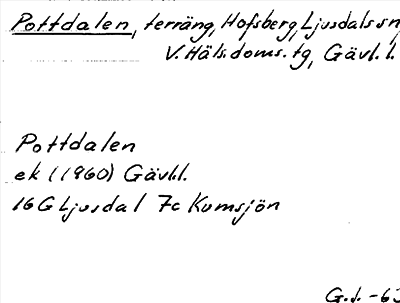 Pottdalen, terräng, Hofsberg, Ljusdals sn,
V. Häls. doms. tg, Gävl. l.
Pottdalen
ek (1960) Gävl.l.
16G Ljusdal 7c Kumsjön
G.I. -63